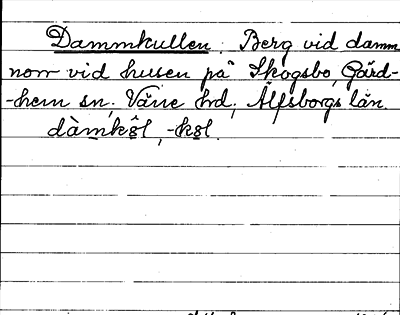 Dammkullen: Berg vid damm
norr vid husen på Skogsbo, Gärd-
-hem sn, Väne hd, Älfsborgs län.
dàmkôl, -kôl.